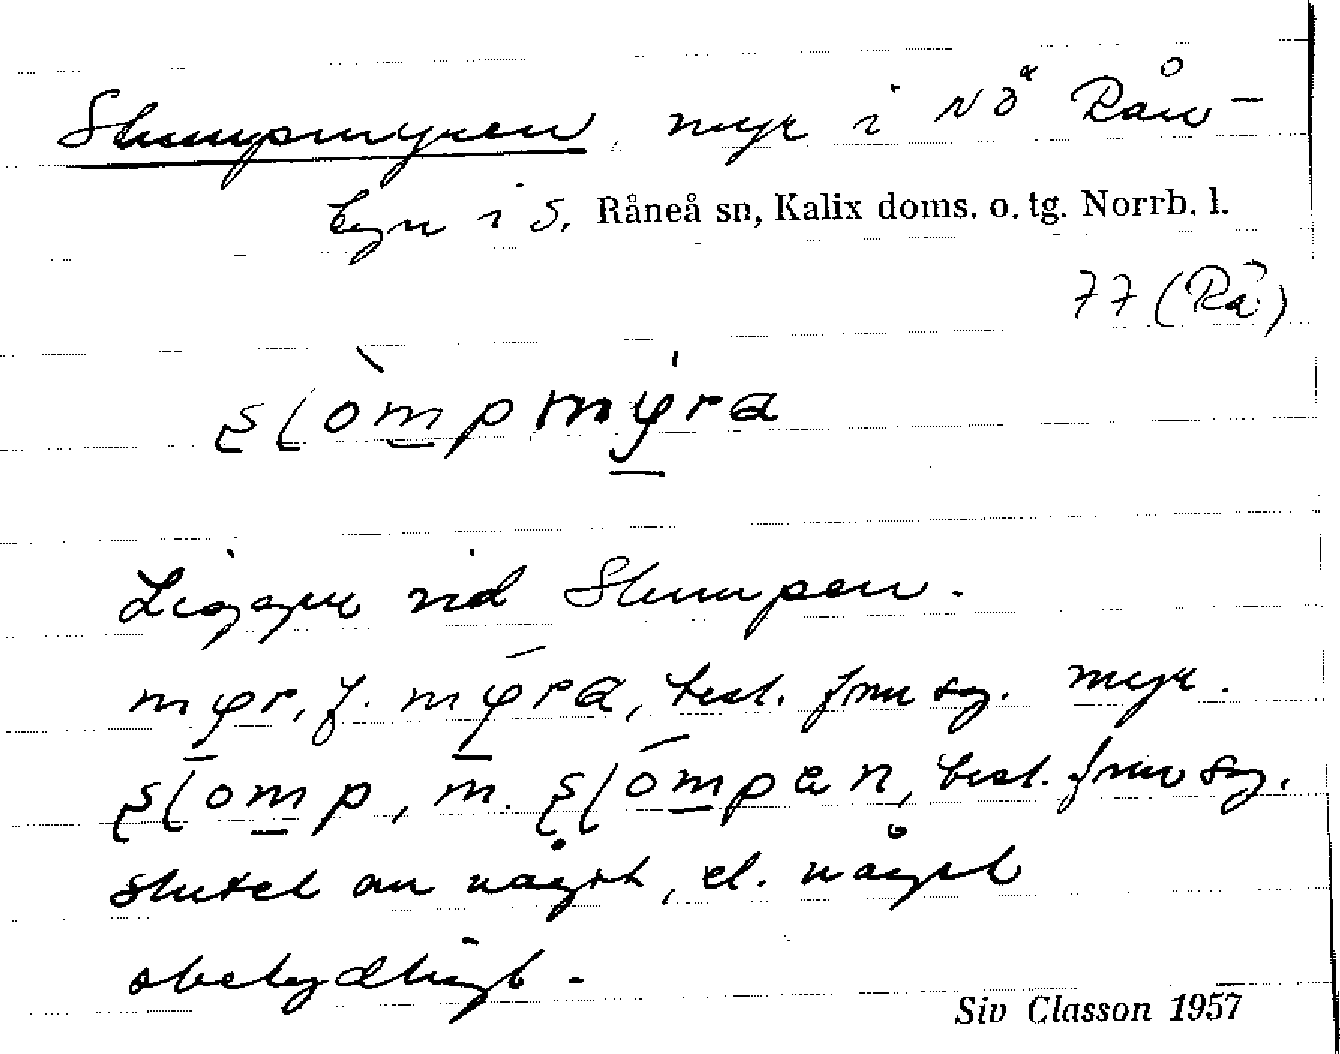 Slumpmyren, myr i NÖ Rån-
byn i S. Råneå sn, Kalix doms. o. tg. Norrb. l.
77 (Rå)
ʂlòmpmýra
Ligger vid Slumpen.
myr, f. mýra, best. form sg. myr.
ʂlomp, m. ʂlómpan, best. form sg.
slutet av något, el. något
obetydligt.
Siv Classon 1957